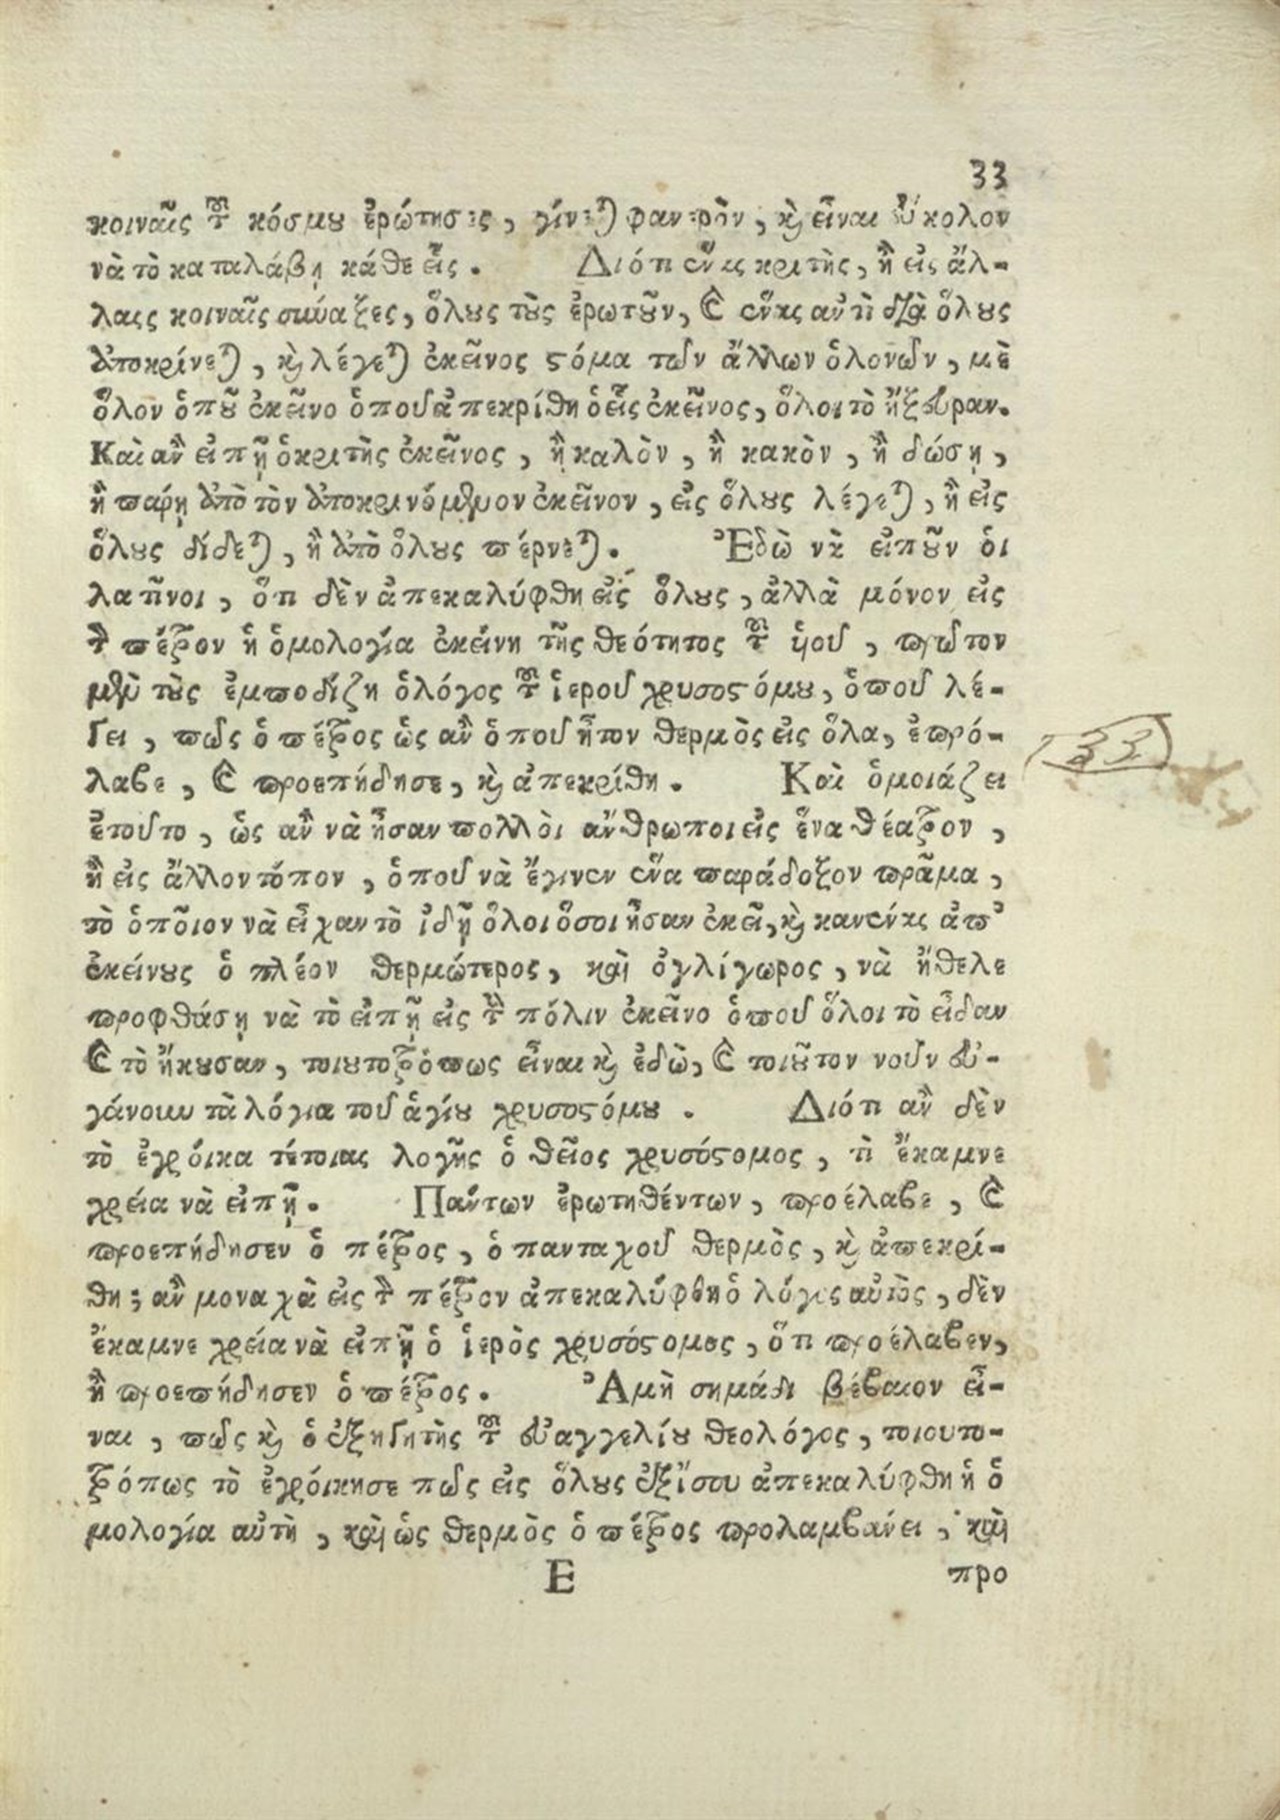 33
κοιναῖς τοῦ κόσμου ἐρώτησες, γίνεται φανερὸν, καὶ εἶναι εὔκολον
νὰ τὸ καταλάβῃ κάθε εἷς. Διότι ἕνας κριτὴς, ἢ εἰς ἄλ-
λαις κοιναῖς σύναξες, ὅλους τοὺς ἐρωτοῦν, καὶ ἕνας ἀντὶ διὰ ὅλους
ἀποκρίνεται, καὶ λέγεται ἐκεῖνος στόμα τῶν ἄλλων ὁλονῶν, μὲ
ὅλον ὁποῦ ἐκεῖνο ὁποῦ ἀπεκρίθη ὁ εἷς ἐκεῖνος, ὅλοι τὸ ἤξευραν.
Καὶ ἂν εἰπῇ ὁ κριτὴς ἐκεῖνος, ἢ καλὸν, ἢ κακὸν, ἢ δώσῃ,
ἢ πάρῃ ἀπὸ τὸν ἀποκρινόμενον ἐκεῖνον, εἰς ὅλους λέγεται, ἢ εἰς
ὅλους δίδεται, ἢ ἀπὸ ὅλους πέρνεται. Ἐδὼ νὰ εἰποῦν ὁι
λατῖνοι, ὅτι δὲν ἀπεκαλύφθη εἰς ὅλους, ἀλλὰ μόνον εἰς
τὸν πέτρον ἡ ὁμολογία ἐκείνη τῆς θεότητος τοῦ υἱοῦ, πρῶτον
μὲν τοὺς ἐμποδίζη ὁ λόγος τοῦ ἱεροῦ χρυσοστόμου, ὁποῦ λέ-
γει, πῶς ὁ πέτρος ὡς ἂν ὁποῦ ἦτον θερμὸς εἰς ὅλα, ἐπρό-
λαβε, καὶ προεπήδησε, καὶ ἀπεκρίθη. Καὶ ὁμοιάζει
ἐτοῦτο, ὡς ἂν νὰ ἦσαν πολλοὶ ἄνθρωποι εἰς ἕνα θέατρον,
ἢ εἰς ἄλλον τόπον, ὁποῦ νὰ ἔγινεν ἕνα παράδοξον πρᾶμα,
τὸ ὁποῖον νὰ εἶχαν τὸ ἰδῇ ὅλοι ὅσοι ἦσαν ἐκεῖ, καὶ κανένας ἀπ'
ἐκείνους ὁ πλέον θερμώτερος, καὶ ὀγλίγωρος, νὰ ἤθελε
προφθάσῃ νὰ τὸ εἰπῇ εἰς τὴν πόλιν ἐκεῖνο ὁποῦ ὅλοι τὸ εἶδαν
καὶ τὸ ἤκουσαν, τοιουτοτρόπως εἶναι καὶ ἐδὼ, καὶ τοιοῦτον νοῦν εὐ-
γάνουν τὰ λόγια τοῦ ἁγίου χρυσοστόμου. Διότι ἂν δὲν
τὸ ἐγρόικα τέτοιας λογῆς ὁ θεῖος χρυσόστομος, τὶ ἔκαμνε
χρεία νὰ εἰπῇ. Πάντων ἐρωτηθέντων, προέλαβε, καὶ
προεπήδησεν ὁ πέτρος, ὁ πανταχοῦ θερμὸς, καὶ ἀπεκρί-
θη; ἂν μοναχὰ εἰς τὸν πέτρον ἀπεκαλύφθη ὁ λόγος αὐτὸς, δὲν
ἔκαμνε χρεία νὰ εἰπῇ ὁ ἱερὸς χρυσόστομος, ὅτι προέλαβεν,
ἢ προεπήδησεν ὁ πέτρος. Ἀμὴ σημάδι βέβαιον εἶ-
ναι, πῶς καὶ ὁ ἐξηγητὴς τοῦ εὐαγγελίου θεολόγος, τοιουτο-
τρόπως τὸ ἐγρόικησε πῶς εἰς ὅλους ἐξίσου ἀπεκαλύφθη ἡ ὁ
μολογία αὐτὴ, καὶ ὡς θερμὸς ὁ πέτρος προλαμβάνει, καὶ
E προ
33